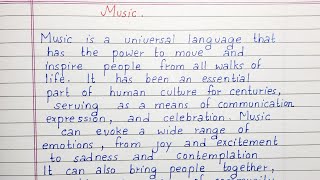 Music.
Music is a universal language that
has the power to move and
inspire people from all walks of
life. It has been an essential
part of human culture for centuries,
serving as a means of communication
expression, and celebration. Music
can evoke a wide range of
emotions, from joy and excitement
to sadness and contemplation
It can also bring people together,
of community